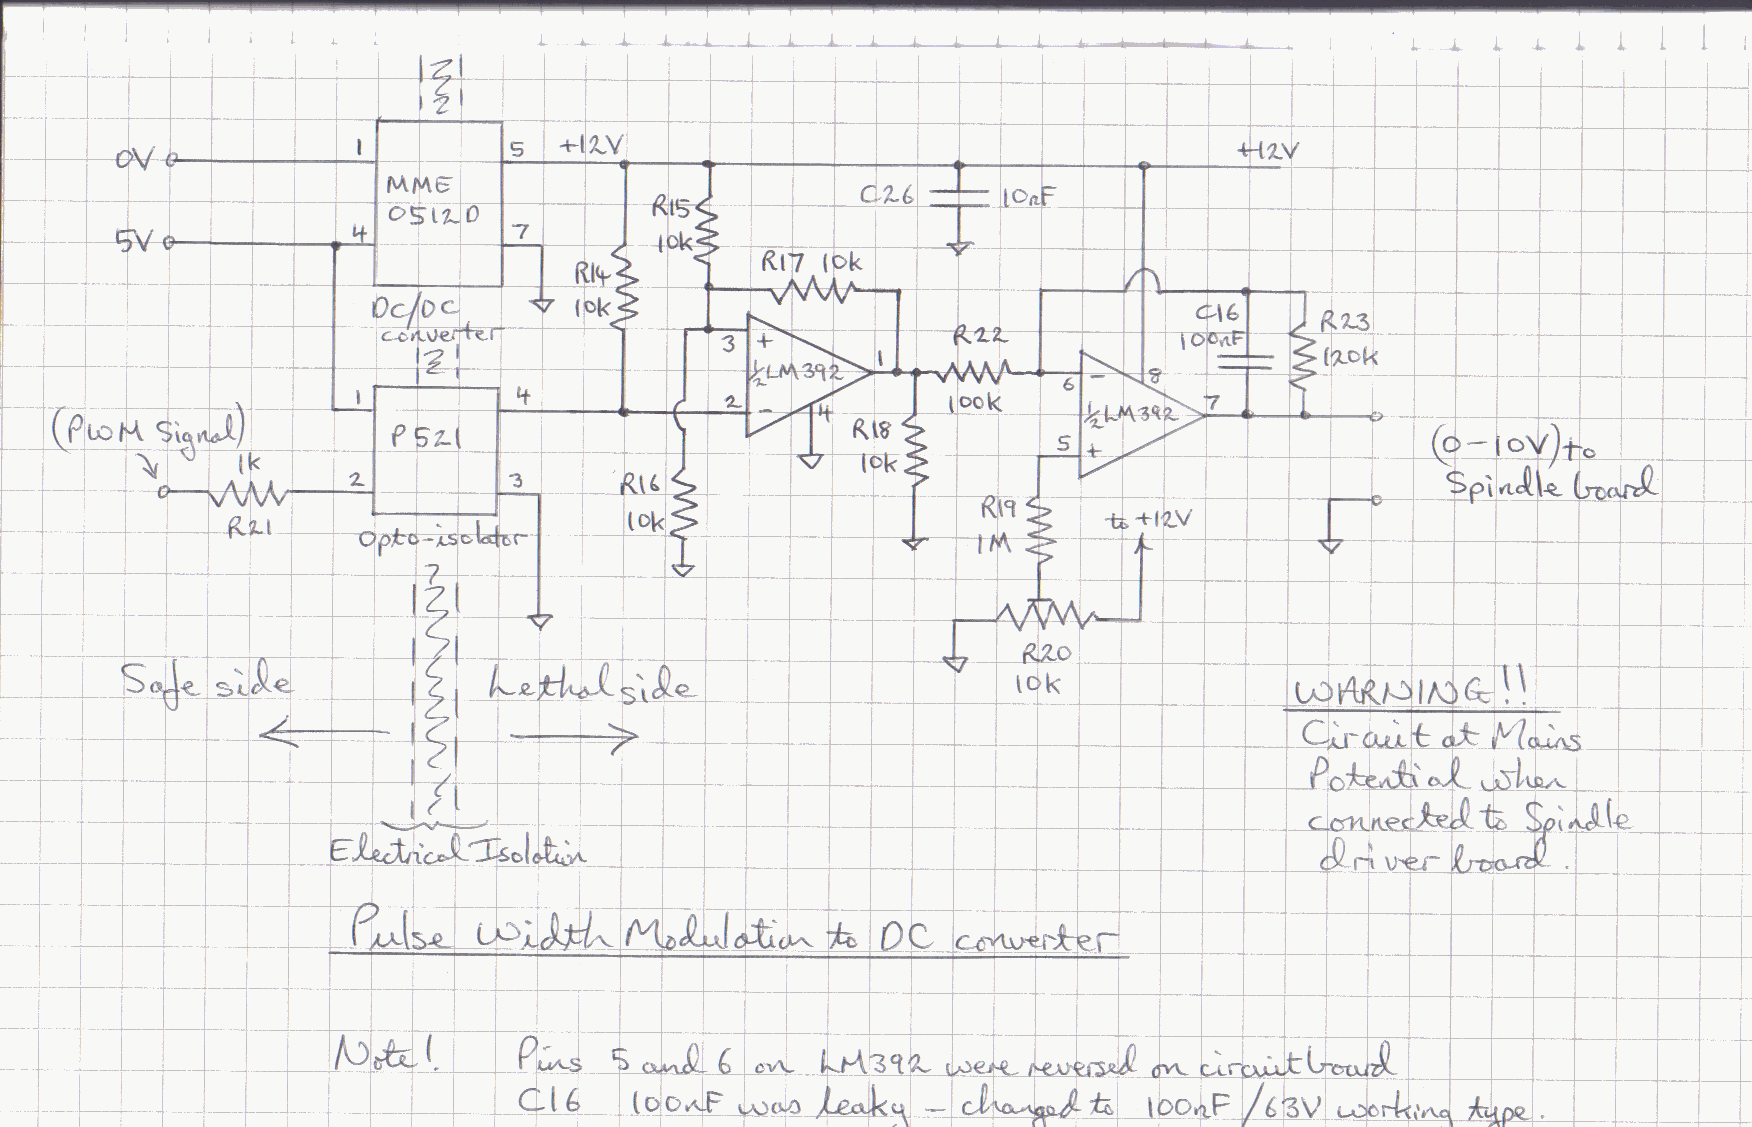 0V
1
5
+12V
+12V
MME
0512D
5V
4
7
DC/DC
converter
R14
10k
R15
10k
R17 10k
C26
10nF
C16
100nF
R23
120k
3
+
½LM392
1
2
-
4
R22
100k
6
-
8
½LM392
7
5
+
(PWM Signal)
1k
R21
1
4
P521
2
3
Opto-isolator
R16
10k
R18
10k
R19
1M
to +12V
R20
10k
(0-10V) to
Spindle board
Safe side
Lethal side
Electrical Isolation
WARNING!!
Circuit at Mains
Potential when
connected to Spindle
driver board.
Pulse Width Modulation to DC converter
Note! Pins 5 and 6 on LM392 were reversed on circuit board
C16 100nF was leaky - changed to 100nF/63V working type.